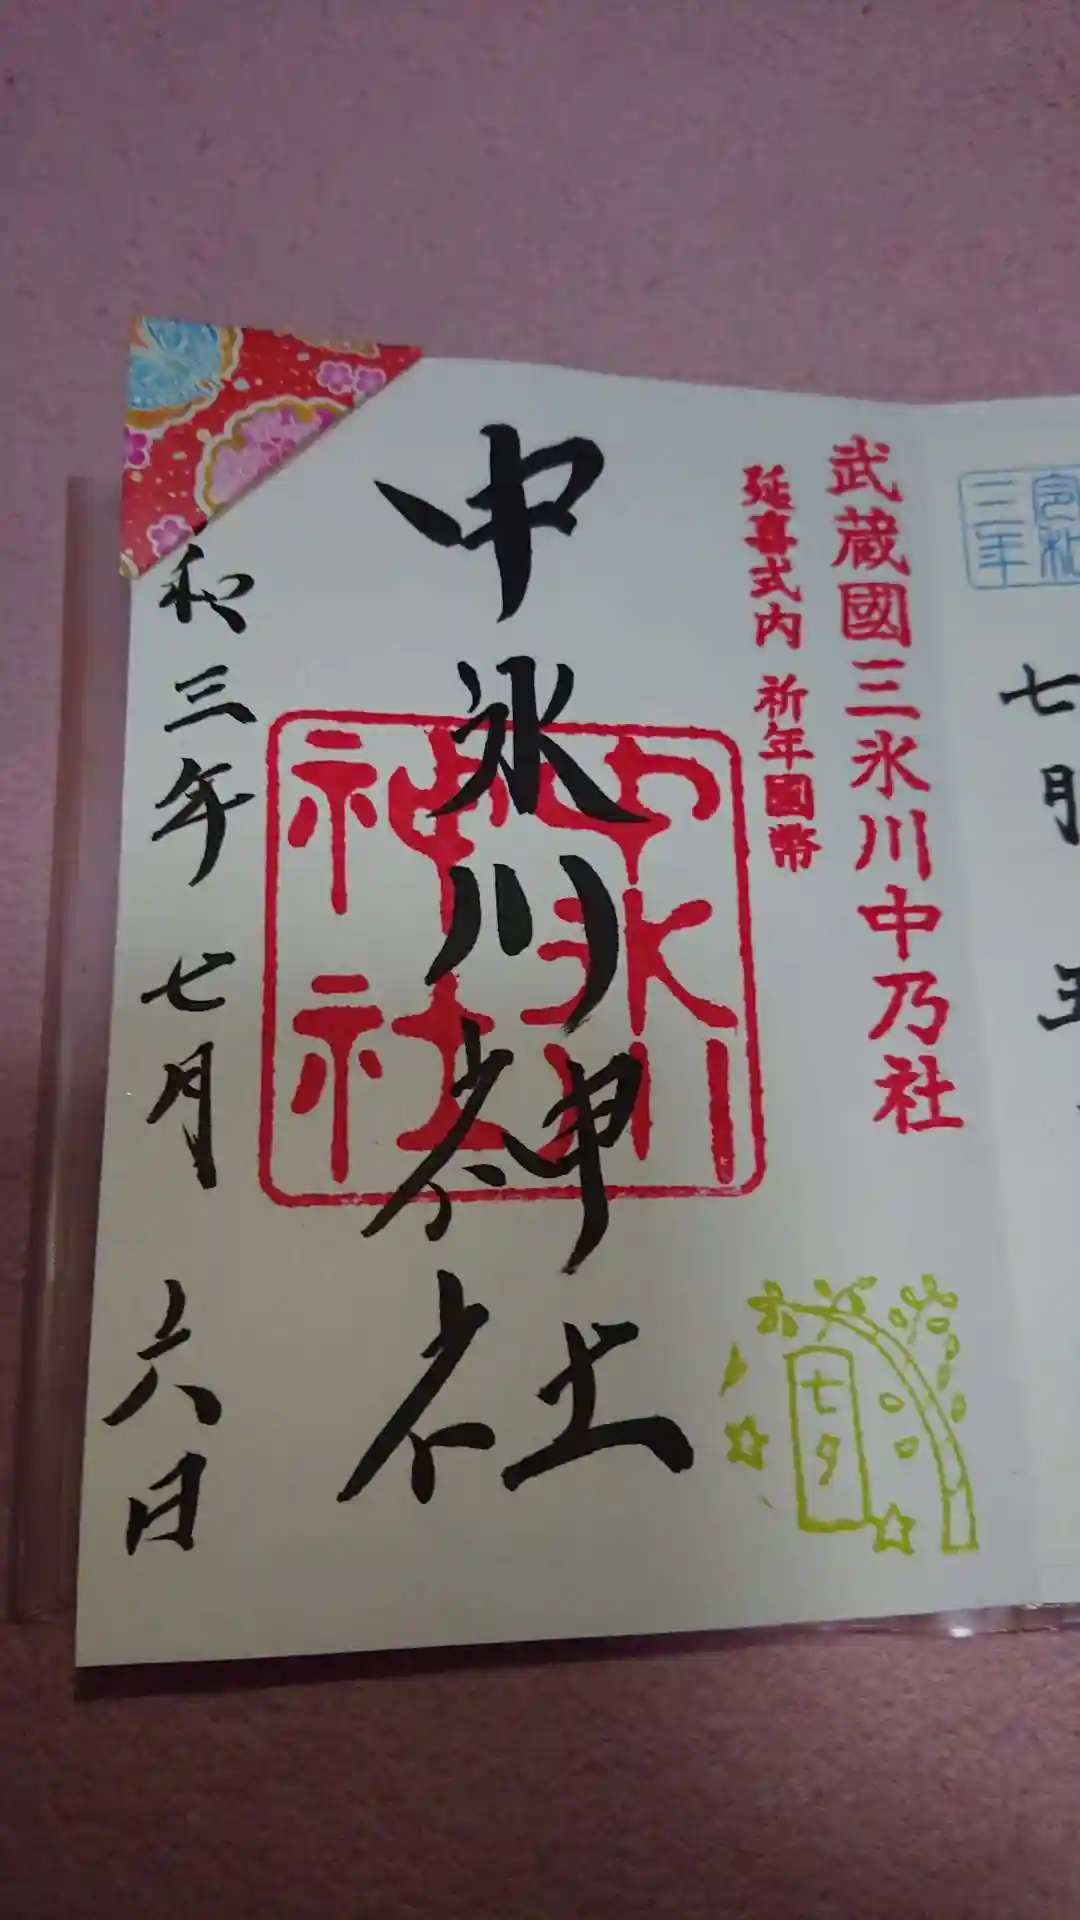 令和
三年
七月
五
武蔵國三氷川中乃社
延喜式内 祈年國幣
七夕
中氷川神社
中氷川
神社
和三年七月六日